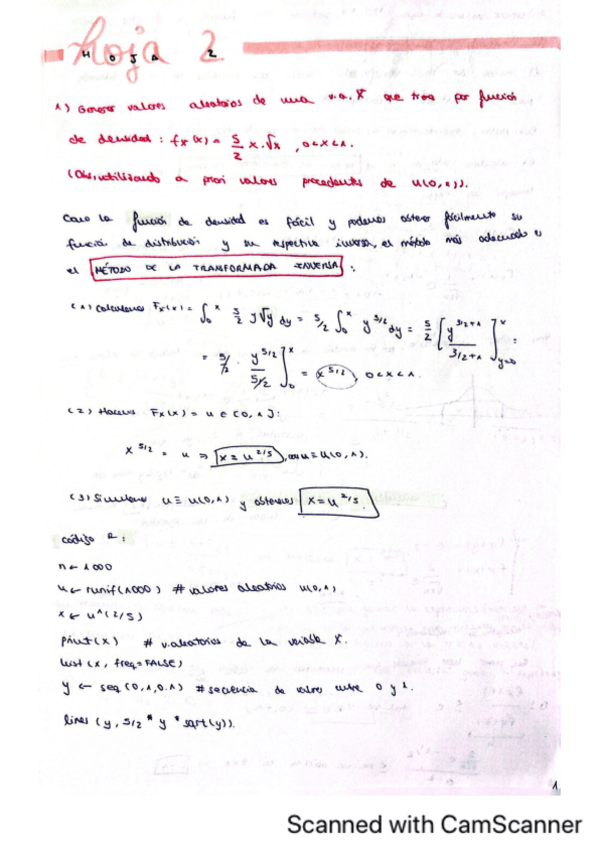 Hoja 2
HOJA 2
1) Generar valores aleatorios de una v.a. X que tiene por función
de densidad: fx(x) = 5/2 x·√x , 0<x<1.
(Obs, utilizando a priori valores procedentes de U(0,1)).
Como la función de densidad es fácil y podemos obtener fácilmente su
función de distribución y su respectiva inversa, el método más adecuado e
el MÉTODO DE LA TRANSFORMADA INVERSA:
(1) Calculamos Fx(x) = ∫₀ˣ 5/2 y√y dy = 5/2 ∫₀ˣ y^3/2 dy = 5/2 [y^3/2+1 / 3/2+1]ˣ y=0 =
= 5/2 · y^5/2 / 5/2 ]ˣ₀ = x^5/2 , 0<x<1.
(2) Hacemos Fx(x) = u ∈ [0,1]:
x^5/2 = u ⇒ x = u^2/5 , con u ≡ U(0,1).
(3) Simulamos u ≡ U(0,1) y obtenemos x = u^2/5.
Código R:
n ← 1000
u ← runif(1000) # valores aleatorios U(0,1)
x ← u^(2/5)
print(x) # v.aleatorios de la variable X.
hist(x, freq=FALSE)
y ← seq(0,1,0.1) # secuencia de valores entre 0 y 1.
lines(y, 5/2 * y * sqrt(y)).
1
Scanned with CamScanner